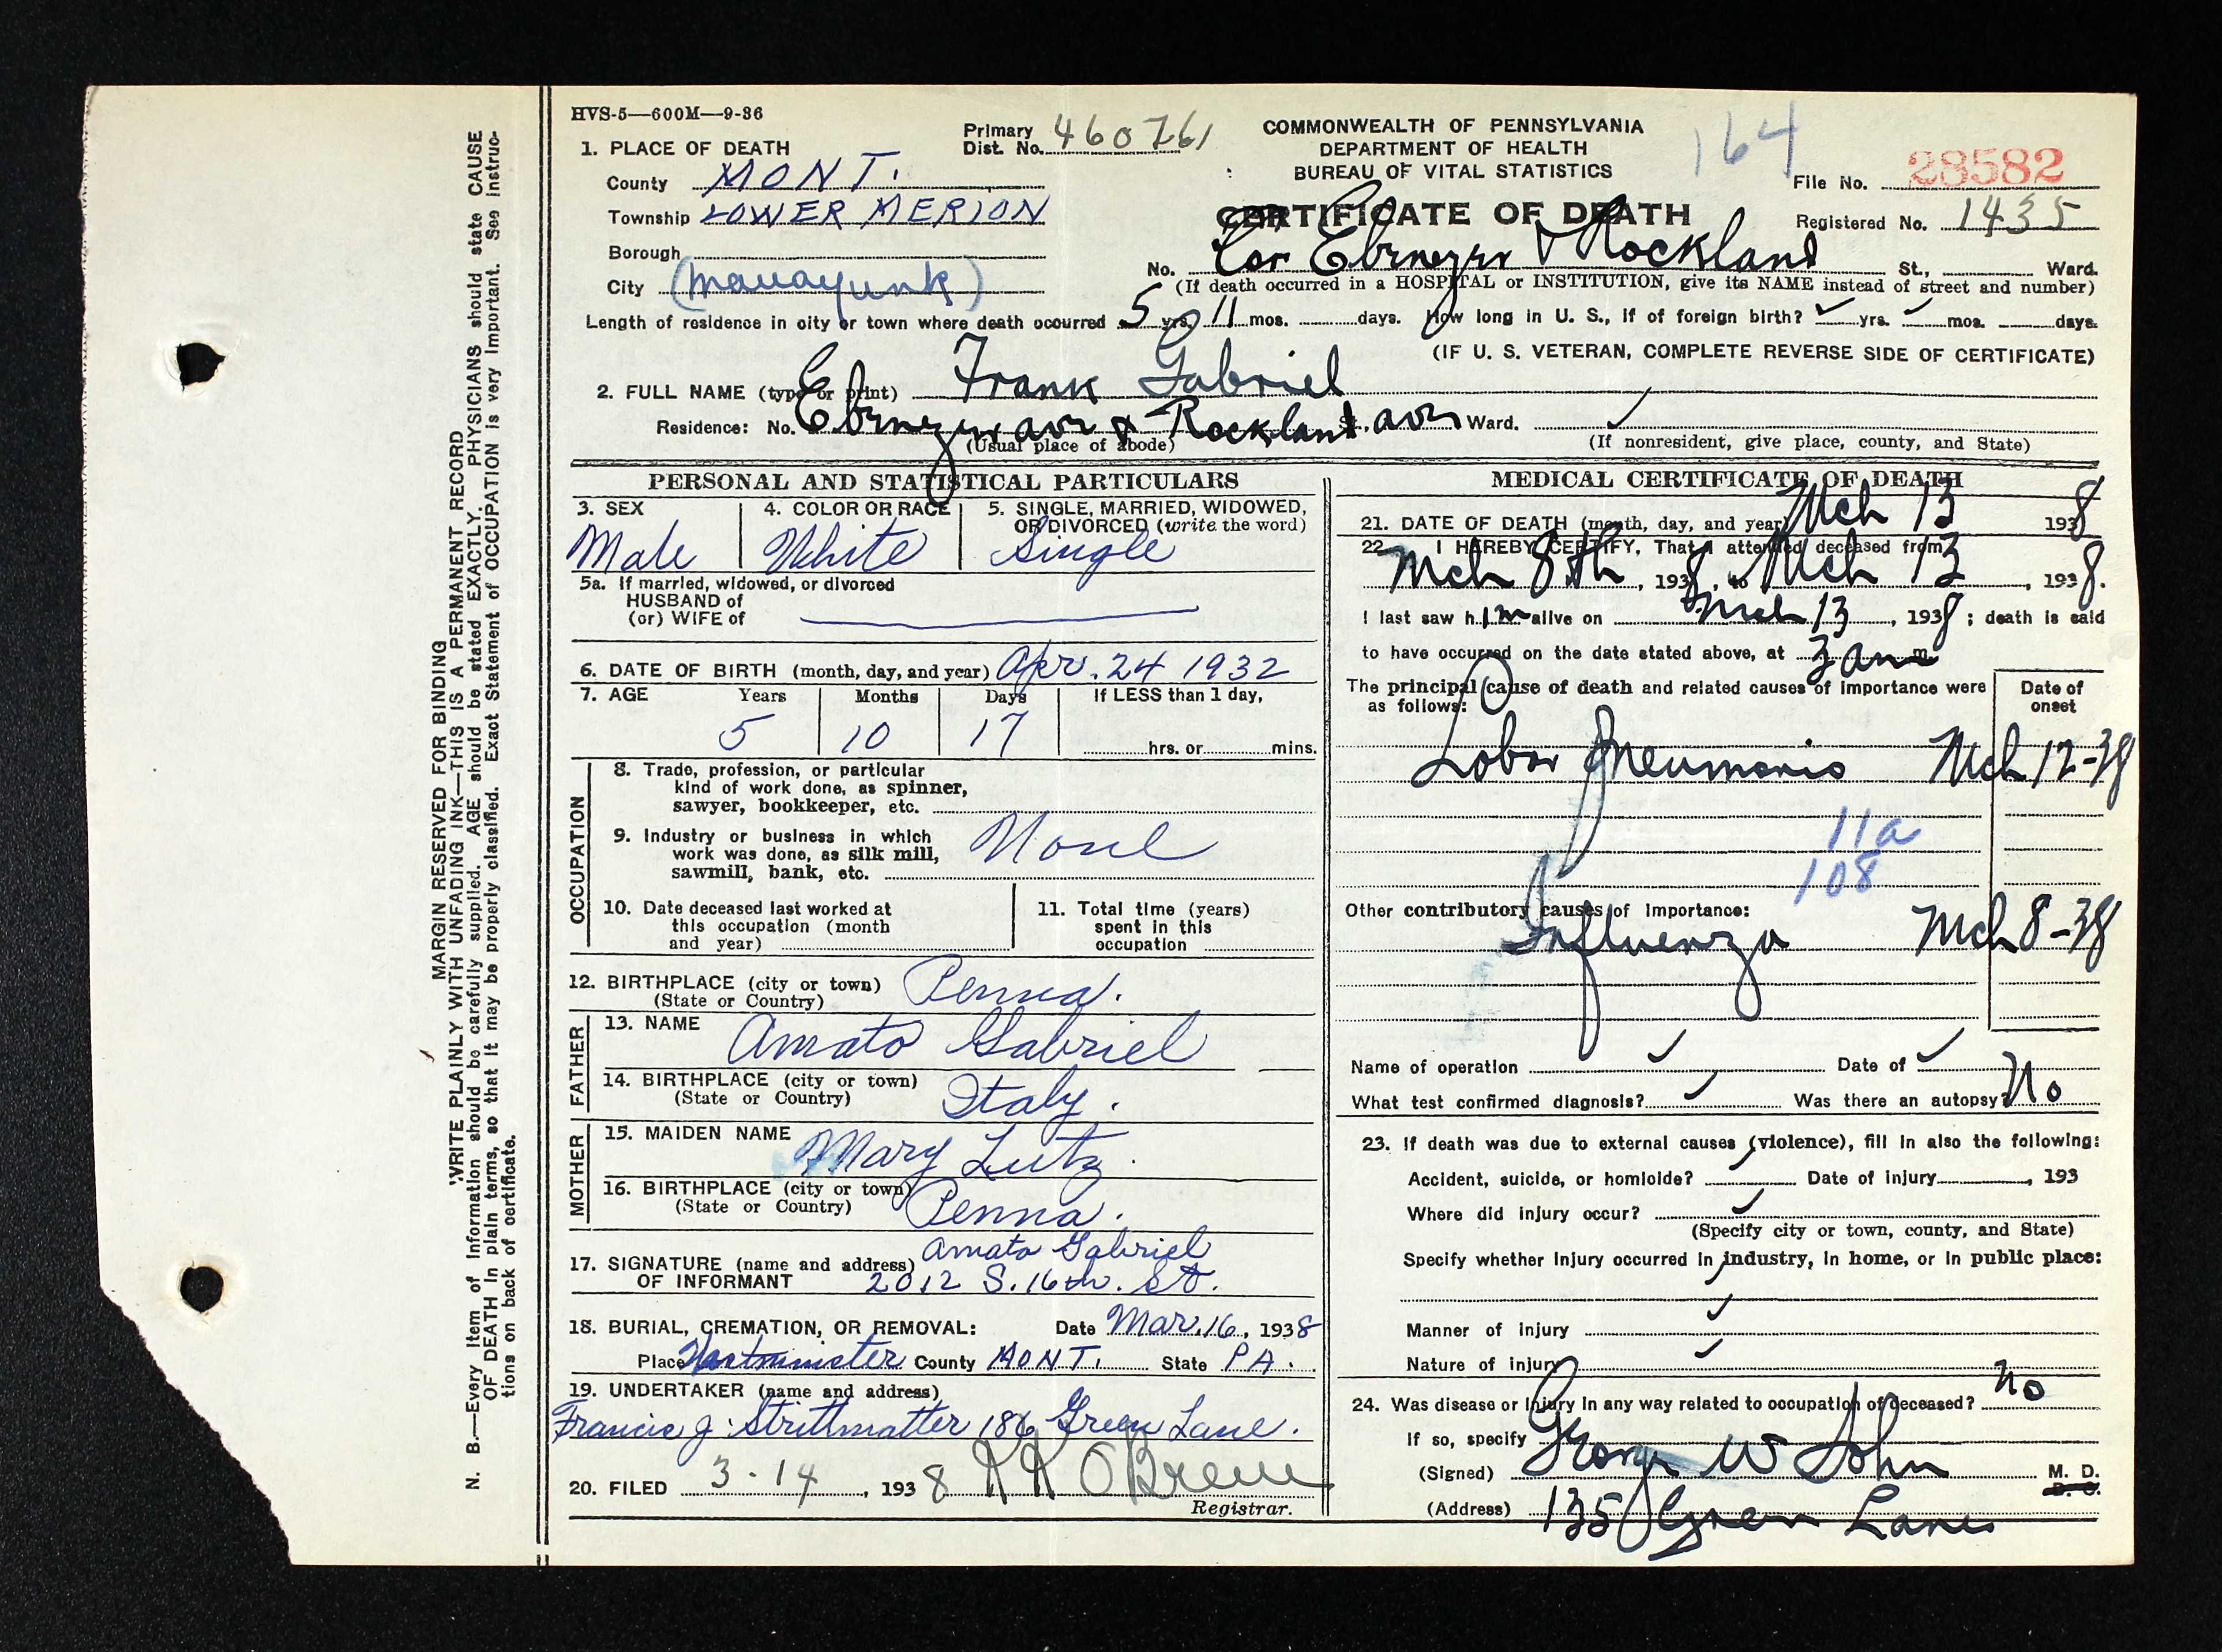 HVS-5—600M—9-36
1. PLACE OF DEATH
County MONT.
Township LOWER MERION
Borough
City (Manayunk)
Primary Dist. No. 460761
COMMONWEALTH OF PENNSYLVANIA
DEPARTMENT OF HEALTH
BUREAU OF VITAL STATISTICS
CERTIFICATE OF DEATH
164
File No. 28582
Registered No. 1435
No. Cor Ebenezer & Rockland St., Ward.
(If death occurred in a HOSPITAL or INSTITUTION, give its NAME instead of street and number)
Length of residence in city or town where death occurred 5 yrs. 11 mos. days. How long in U. S., if of foreign birth? yrs. mos. days.
(IF U. S. VETERAN, COMPLETE REVERSE SIDE OF CERTIFICATE)
2. FULL NAME (type or print) Frank Gabriel
Residence: No. Ebenezer ave & Rockland St. ave Ward.
(Usual place of abode) (If nonresident, give place, county, and State)
PERSONAL AND STATISTICAL PARTICULARS
3. SEX
Male
4. COLOR OR RACE
White
5. SINGLE, MARRIED, WIDOWED,
OR DIVORCED (write the word)
Single
5a. If married, widowed, or divorced
HUSBAND of
(or) WIFE of
6. DATE OF BIRTH (month, day, and year) Apr. 24 1932
7. AGE Years Months Days If LESS than 1 day,
5 10 17 hrs. or mins.
OCCUPATION
8. Trade, profession, or particular
kind of work done, as spinner,
sawyer, bookkeeper, etc.
9. Industry or business in which
work was done, as silk mill,
sawmill, bank, etc. None
10. Date deceased last worked at
this occupation (month
and year)
11. Total time (years)
spent in this
occupation
12. BIRTHPLACE (city or town) Penna.
(State or Country)
FATHER
13. NAME Amato Gabriel
14. BIRTHPLACE (city or town)
(State or Country) Italy.
MOTHER
15. MAIDEN NAME Mary Lutz.
16. BIRTHPLACE (city or town)
(State or Country) Penna.
17. SIGNATURE (name and address) Amato Gabriel
OF INFORMANT 2012 S. 16th. St.
18. BURIAL, CREMATION, OR REMOVAL: Date Mar. 16, 1938
Place Westminister County MONT. State PA.
19. UNDERTAKER (name and address)
Francis J. Strittmatter 186 Green Lane.
20. FILED 3-14, 1938
Registrar.
MEDICAL CERTIFICATE OF DEATH
21. DATE OF DEATH (month, day, and year) Mch 13 1938
22. I HEREBY CERTIFY, That I attended deceased from
Mch 8th, 1938, to Mch 13, 1938.
I last saw him alive on Mch 13, 1938; death is said
to have occurred on the date stated above, at 3 am m.
The principal cause of death and related causes of importance were
as follows:
Date of
onset
Lobar Pneumonia Mch 12-38
11a
108
Other contributory causes of importance:
Influenza Mch 8-38
Name of operation Date of
What test confirmed diagnosis? Was there an autopsy? No
23. If death was due to external causes (violence), fill in also the following:
Accident, suicide, or homicide? Date of injury , 193
Where did injury occur?
(Specify city or town, county, and State)
Specify whether injury occurred in industry, in home, or in public place:
Manner of injury
Nature of injury
24. Was disease or injury in any way related to occupation of deceased? no
If so, specify
(Signed) George W John M. D.
D. O.
(Address) 135 Green Lane
MARGIN RESERVED FOR BINDING
WRITE PLAINLY WITH UNFADING INK—THIS IS A PERMANENT RECORD
N. B.—Every item of information should be carefully supplied. AGE should be stated EXACTLY. PHYSICIANS should state CAUSE
OF DEATH in plain terms, so that it may be properly classified. Exact Statement of OCCUPATION is very important. See instruc-
tions on back of certificate.